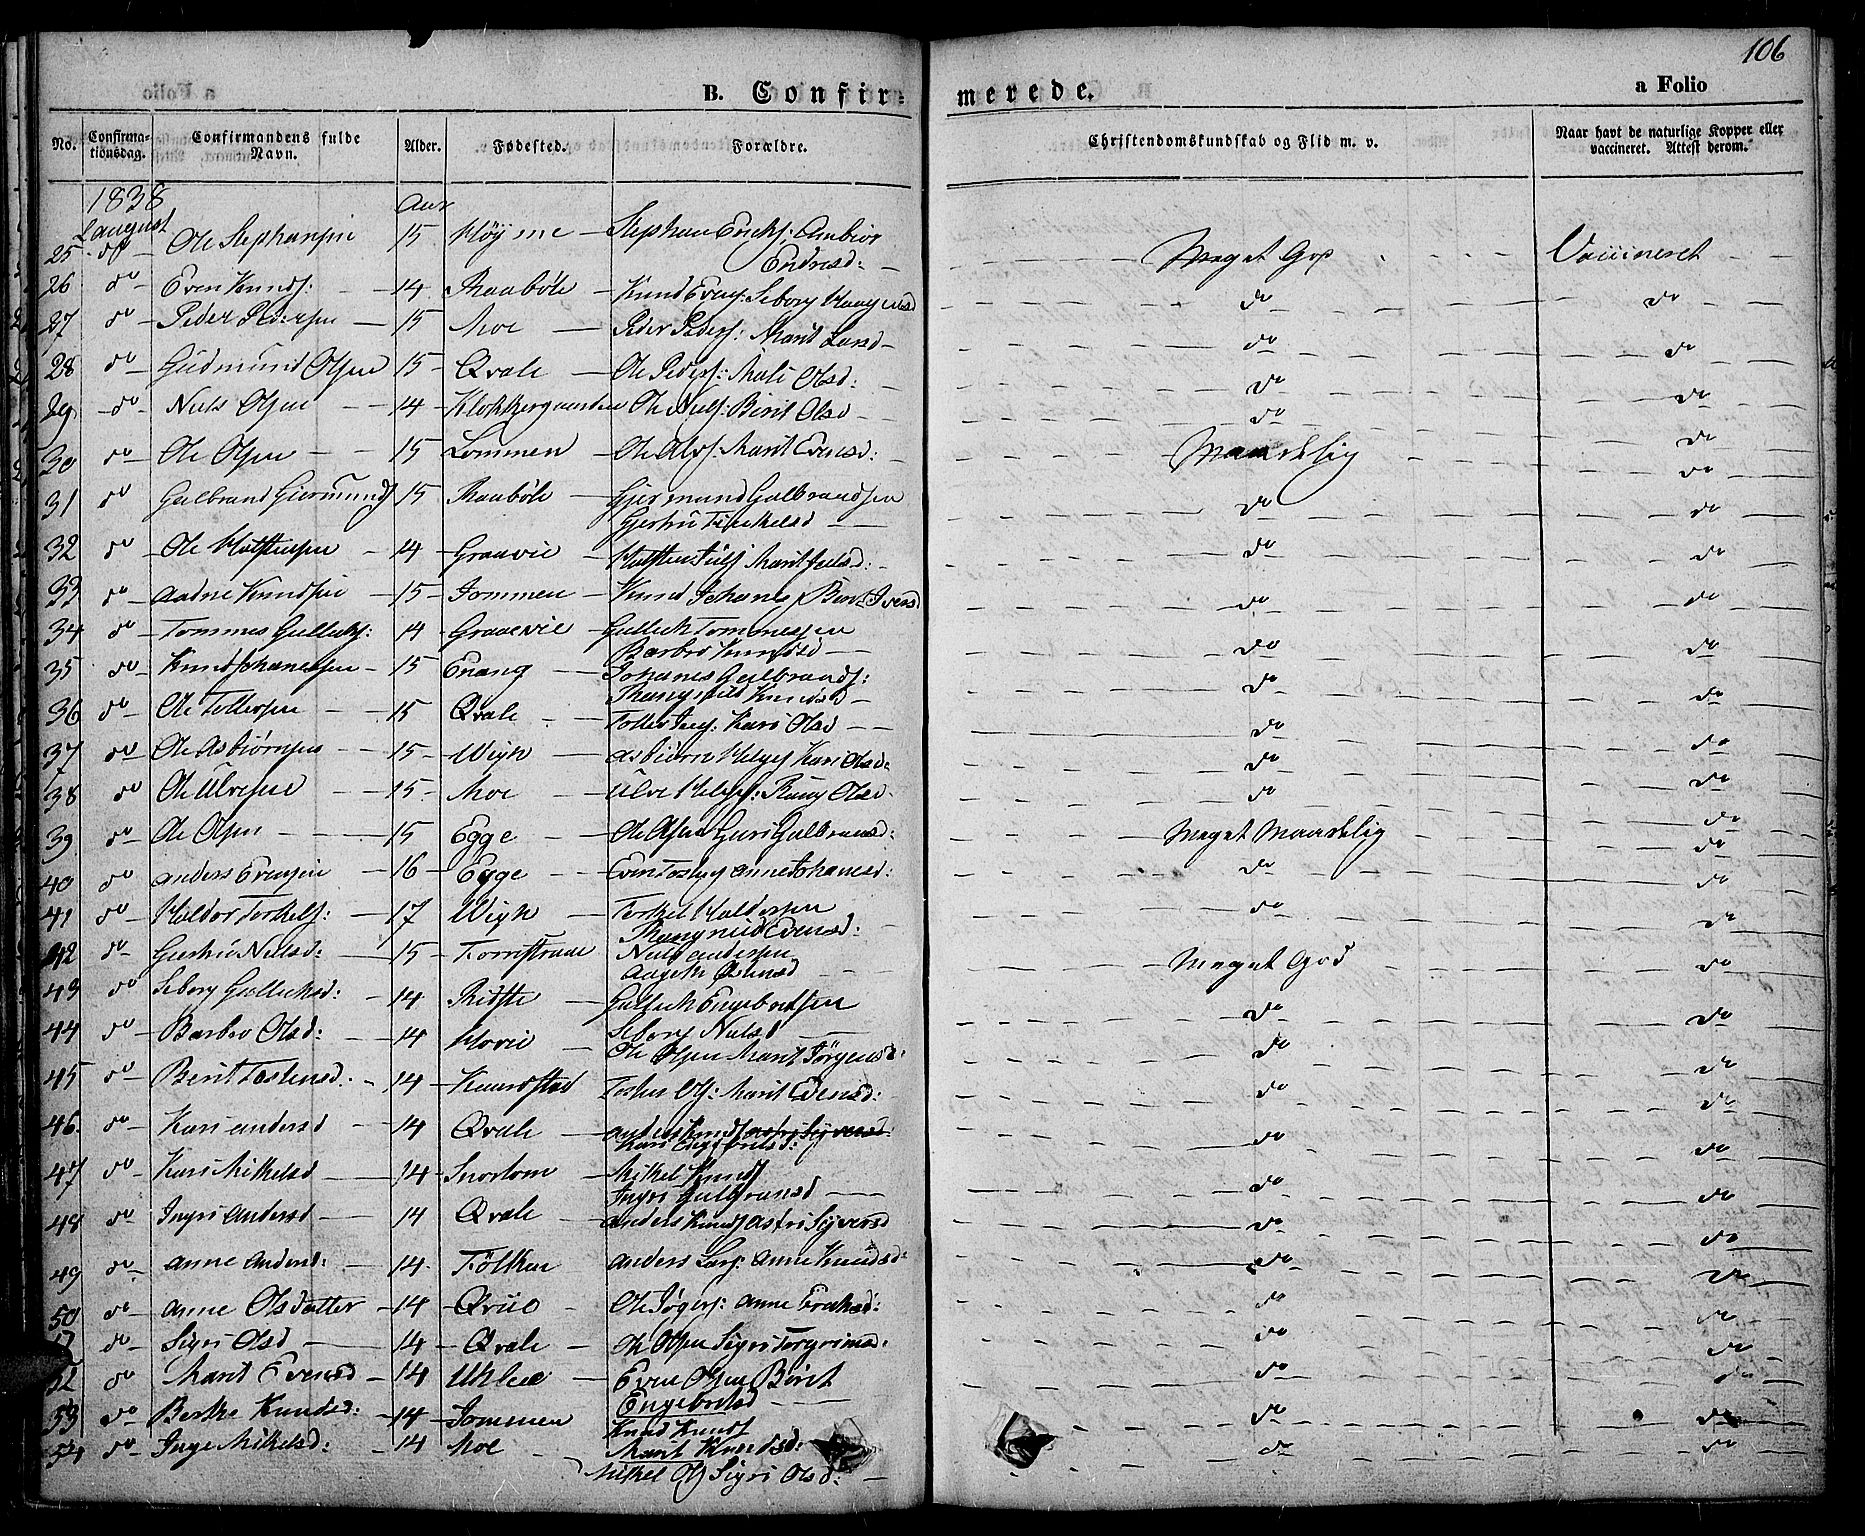 106
B. Confirmerede.
a Folio
No. Confirmationsdag. Confirmandens fulde Navn. Alder. Fødested. Forældre. Christendomskundskab og Flid m. v. Naar havt de naturlige Kopper eller vaccineret. Attest derom.
1838 Aar
august
25 do Ole Stephensen 15 Høyme Stephan Ericks: Meget God Vaccineret
Endresd:
26 do Even Knuds: 14 Raabøle Knud Evens: Seborg Haagensd do do
27 do Peder Pedersen 15 Moe Peder Peders: Marit Larsd do do
28 do Gudmund Olsen 15 Qvale Ole Peders: Mali Olsd: do do
29 do Niels Olsen 14 Klokkergaarden Ole Niels: Birit Olsd do do
30 do Ole Olsen 15 Lommen Ole Ols: Marit Evensd: Maadelig do
31 do Gulbrand Giermunds 15 Raabøle Gjermund Gulbrandsen do do
Gjertru Tinkelsd
32 do Ole Halstensen 14 Graavie Halsten Marit do do
33 do Aadne Knudsen 15 Jommen Knud Johanes Birit Iversd do do
34 do Tommes Gullicks: 14 Graavie Gullick Tommessen do do
Barbro Knudsd
35 do Knud Johanessen 15 Erang Johanes Gulbrands: do do
Rangnild Knudsd
36 do Ole Tollefsen 15 Qvale Kari Olsd do do
37 do Ole Asbiørnsen 15 Wigh Asbiørn Helges Kari Olsd: do do
38 do Ole Ulvesen 15 Moe Ulve Helges: Rang Olsd. do do
39 do Ole Olsen 15 Egge Ole Olsen Guri Gulbransd: Meget Maadelig do
40 do Anders Evensen 16 Egge Even Anne Johanesd: do do
41 do Haldor Torkels: 17 Wigh Torkel Haldorsen do do
Rangnild Evensd:
42 do Giertru Nielsd: 15 Niels Andersen Meget God do
Aageth
43 do Seborg Gullicksd: 14 Riste Gullick Engebretsen do do
Seborg Nielsd
44 do Barbro Olsd: 14 Hovie Ole Olsen Marit Jørgensd: do do
45 do Berit Tostensd: 14 Kaardstad Tosten Ols: Marit Evensd: do do
46. do Kari Andersd 14 Qvale Anders Knuds Astri Syversd. do do
Kari
47 do Kari Mikelsd 14 Mikel Knuds do do
Ingri Gulbransd
48 do Ingri Andersd 14 Qvale Anders Knuds Astri Syversd do do
49 do Anne Andersd: 14. Følken Anders Lars: Anne Knudsd: do do
50 do Anne Olsdatter 14 Anne do do
do Sigri Olsd 14 Qvale Ole Olsen Sigri Torgrimsd: do do
52 do Marit Evensd 14 Uhlee Even Olsen Børit do do
Engebretsd
53 do Berthe Knudsd: 14 Jommen Knud Knuds do do
Marit Knudsd:
54 do Inge Mikelsd: 14 Moe do do
Mikel Ols Sigri Olsd: